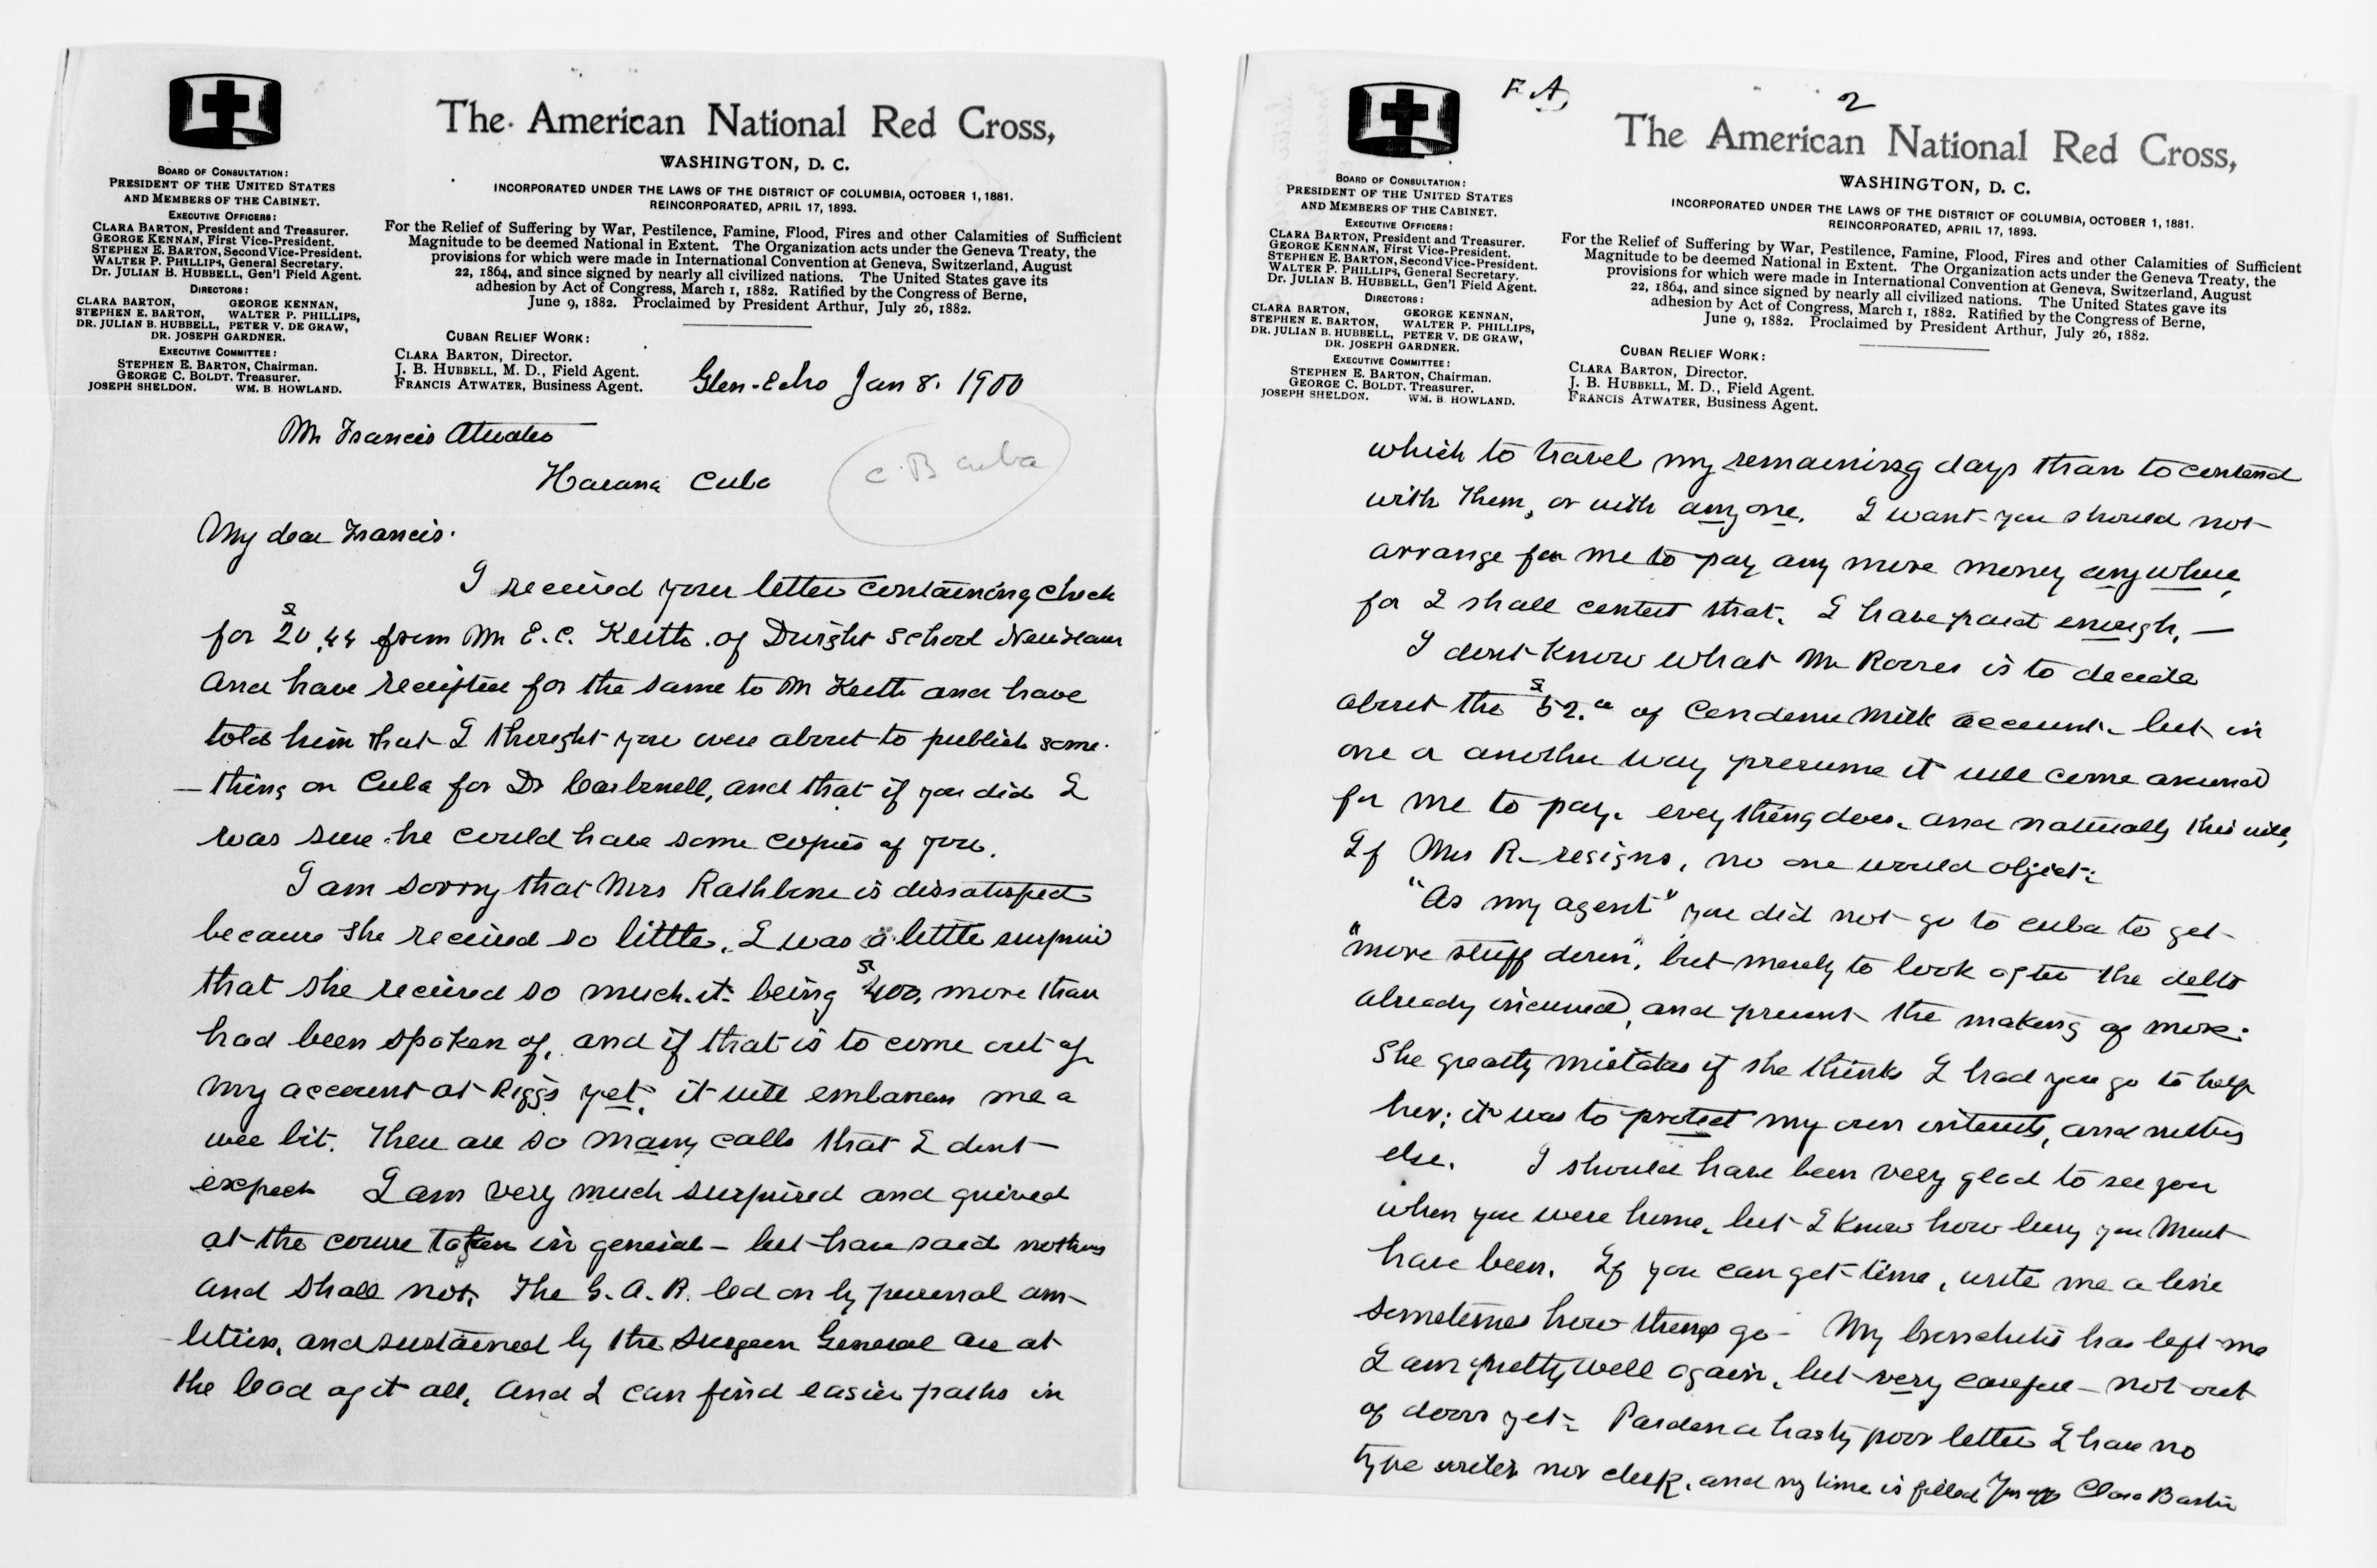 The American National Red Cross,
WASHINGTON, D. C.
INCORPORATED UNDER THE LAWS OF THE DISTRICT OF COLUMBIA, OCTOBER 1, 1881.
REINCORPORATED, APRIL 17, 1893.
For the Relief of Suffering by War, Pestilence, Famine, Flood, Fires and other Calamities of Sufficient
Magnitude to be deemed National in Extent. The Organization acts under the Geneva Treaty, the
provisions for which were made in International Convention at Geneva, Switzerland, August
22, 1864, and since signed by nearly all civilized nations. The United States gave its
adhesion by Act of Congress, March 1, 1882. Ratified by the Congress of Berne,
June 9, 1882. Proclaimed by President Arthur, July 26, 1882.
BOARD OF CONSULTATION:
PRESIDENT OF THE UNITED STATES
AND MEMBERS OF THE CABINET.
EXECUTIVE OFFICERS:
CLARA BARTON, President and Treasurer.
GEORGE KENNAN, First Vice-President.
STEPHEN E. BARTON, Second Vice-President.
WALTER P. PHILLIPS, General Secretary.
Dr. JULIAN B. HUBBELL, Gen'l Field Agent.
DIRECTORS:
CLARA BARTON, GEORGE KENNAN,
STEPHEN E. BARTON, WALTER P. PHILLIPS,
DR. JULIAN B. HUBBELL, PETER V. DE GRAW,
DR. JOSEPH GARDNER.
EXECUTIVE COMMITTEE:
STEPHEN E. BARTON, Chairman.
GEORGE C. BOLDT, Treasurer.
JOSEPH SHELDON. WM. B. HOWLAND.
CUBAN RELIEF WORK:
CLARA BARTON, Director.
J. B. HUBBELL, M. D., Field Agent.
FRANCIS ATWATER, Business Agent.
Glen-Echo Jan 8. 1900
Mr Francis Atwater
Havana Cuba
C. B Cuba
My dear Francis.
I received your letter containing check
for $20.44 from Mr E. C. Keith of Dwight School New Haven
and have receipted for the same to Mr Keith and have
told him that I thought you were about to publish some-
thing on Cuba for Dr Carbonell, and that if you did I
was sure he could have some copies of you.
I am sorry that Mrs Rathbone is dissatisfied
because she received so little. I was a little surprised
that she received so much. it being $400. more than
had been spoken of, and if that is to come out of
my account at Riggs yet, it will embarrass me a
wee bit. There are so many calls that I dont
expect I am very much surprised and grieved
at the course taken in general - but have said nothing
and shall not. The G. A. R. led on by personal am-
bition, and sustained by the Surgeon General are at
the lead of it all, and I can find easier paths in
F. A, 2
The American National Red Cross,
WASHINGTON, D. C.
INCORPORATED UNDER THE LAWS OF THE DISTRICT OF COLUMBIA, OCTOBER 1, 1881.
REINCORPORATED, APRIL 17, 1893.
For the Relief of Suffering by War, Pestilence, Famine, Flood, Fires and other Calamities of Sufficient
Magnitude to be deemed National in Extent. The Organization acts under the Geneva Treaty, the
provisions for which were made in International Convention at Geneva, Switzerland, August
22, 1864, and since signed by nearly all civilized nations. The United States gave its
adhesion by Act of Congress, March 1, 1882. Ratified by the Congress of Berne,
June 9, 1882. Proclaimed by President Arthur, July 26, 1882.
BOARD OF CONSULTATION:
PRESIDENT OF THE UNITED STATES
AND MEMBERS OF THE CABINET.
EXECUTIVE OFFICERS:
CLARA BARTON, President and Treasurer.
GEORGE KENNAN, First Vice-President.
STEPHEN E. BARTON, Second Vice-President.
WALTER P. PHILLIPS, General Secretary.
Dr. JULIAN B. HUBBELL, Gen'l Field Agent.
DIRECTORS:
CLARA BARTON, GEORGE KENNAN,
STEPHEN E. BARTON, WALTER P. PHILLIPS,
DR. JULIAN B. HUBBELL, PETER V. DE GRAW,
DR. JOSEPH GARDNER.
EXECUTIVE COMMITTEE:
STEPHEN E. BARTON, Chairman.
GEORGE C. BOLDT, Treasurer.
JOSEPH SHELDON. WM. B. HOWLAND.
CUBAN RELIEF WORK:
CLARA BARTON, Director.
J. B. HUBBELL, M. D., Field Agent.
FRANCIS ATWATER, Business Agent.
which to travel my remaining days than to contend
with them, or with any one. I want you should not
arrange for me to pay any more money anywhere,
for I shall contest that. I have paid enough, —
I dont know what Mr is to decide
about the $52. of Milk account. but in
one or another way presume it will come around
for me to pay. every thing does. and naturally this will,
If Mrs R— resigns, no one would object.
"As my agent" you did not go to cuba to get
"more stuff down", but merely to look after the debts
already incurred, and prevent the making of more.
She greatly mistakes if she thinks I had you go to help
her; it was to protect my own interests, and nothing
else. I should have been very glad to see you
when you were home, but I know how busy you must
have been. If you can get time, write me a line
sometimes how things go - My bronchitis has left me
I am pretty well again, but very careful - not out
of doors yet. Pardon a hasty poor letter I have no
type writer nor clerk, and my time is filled Clara Barton